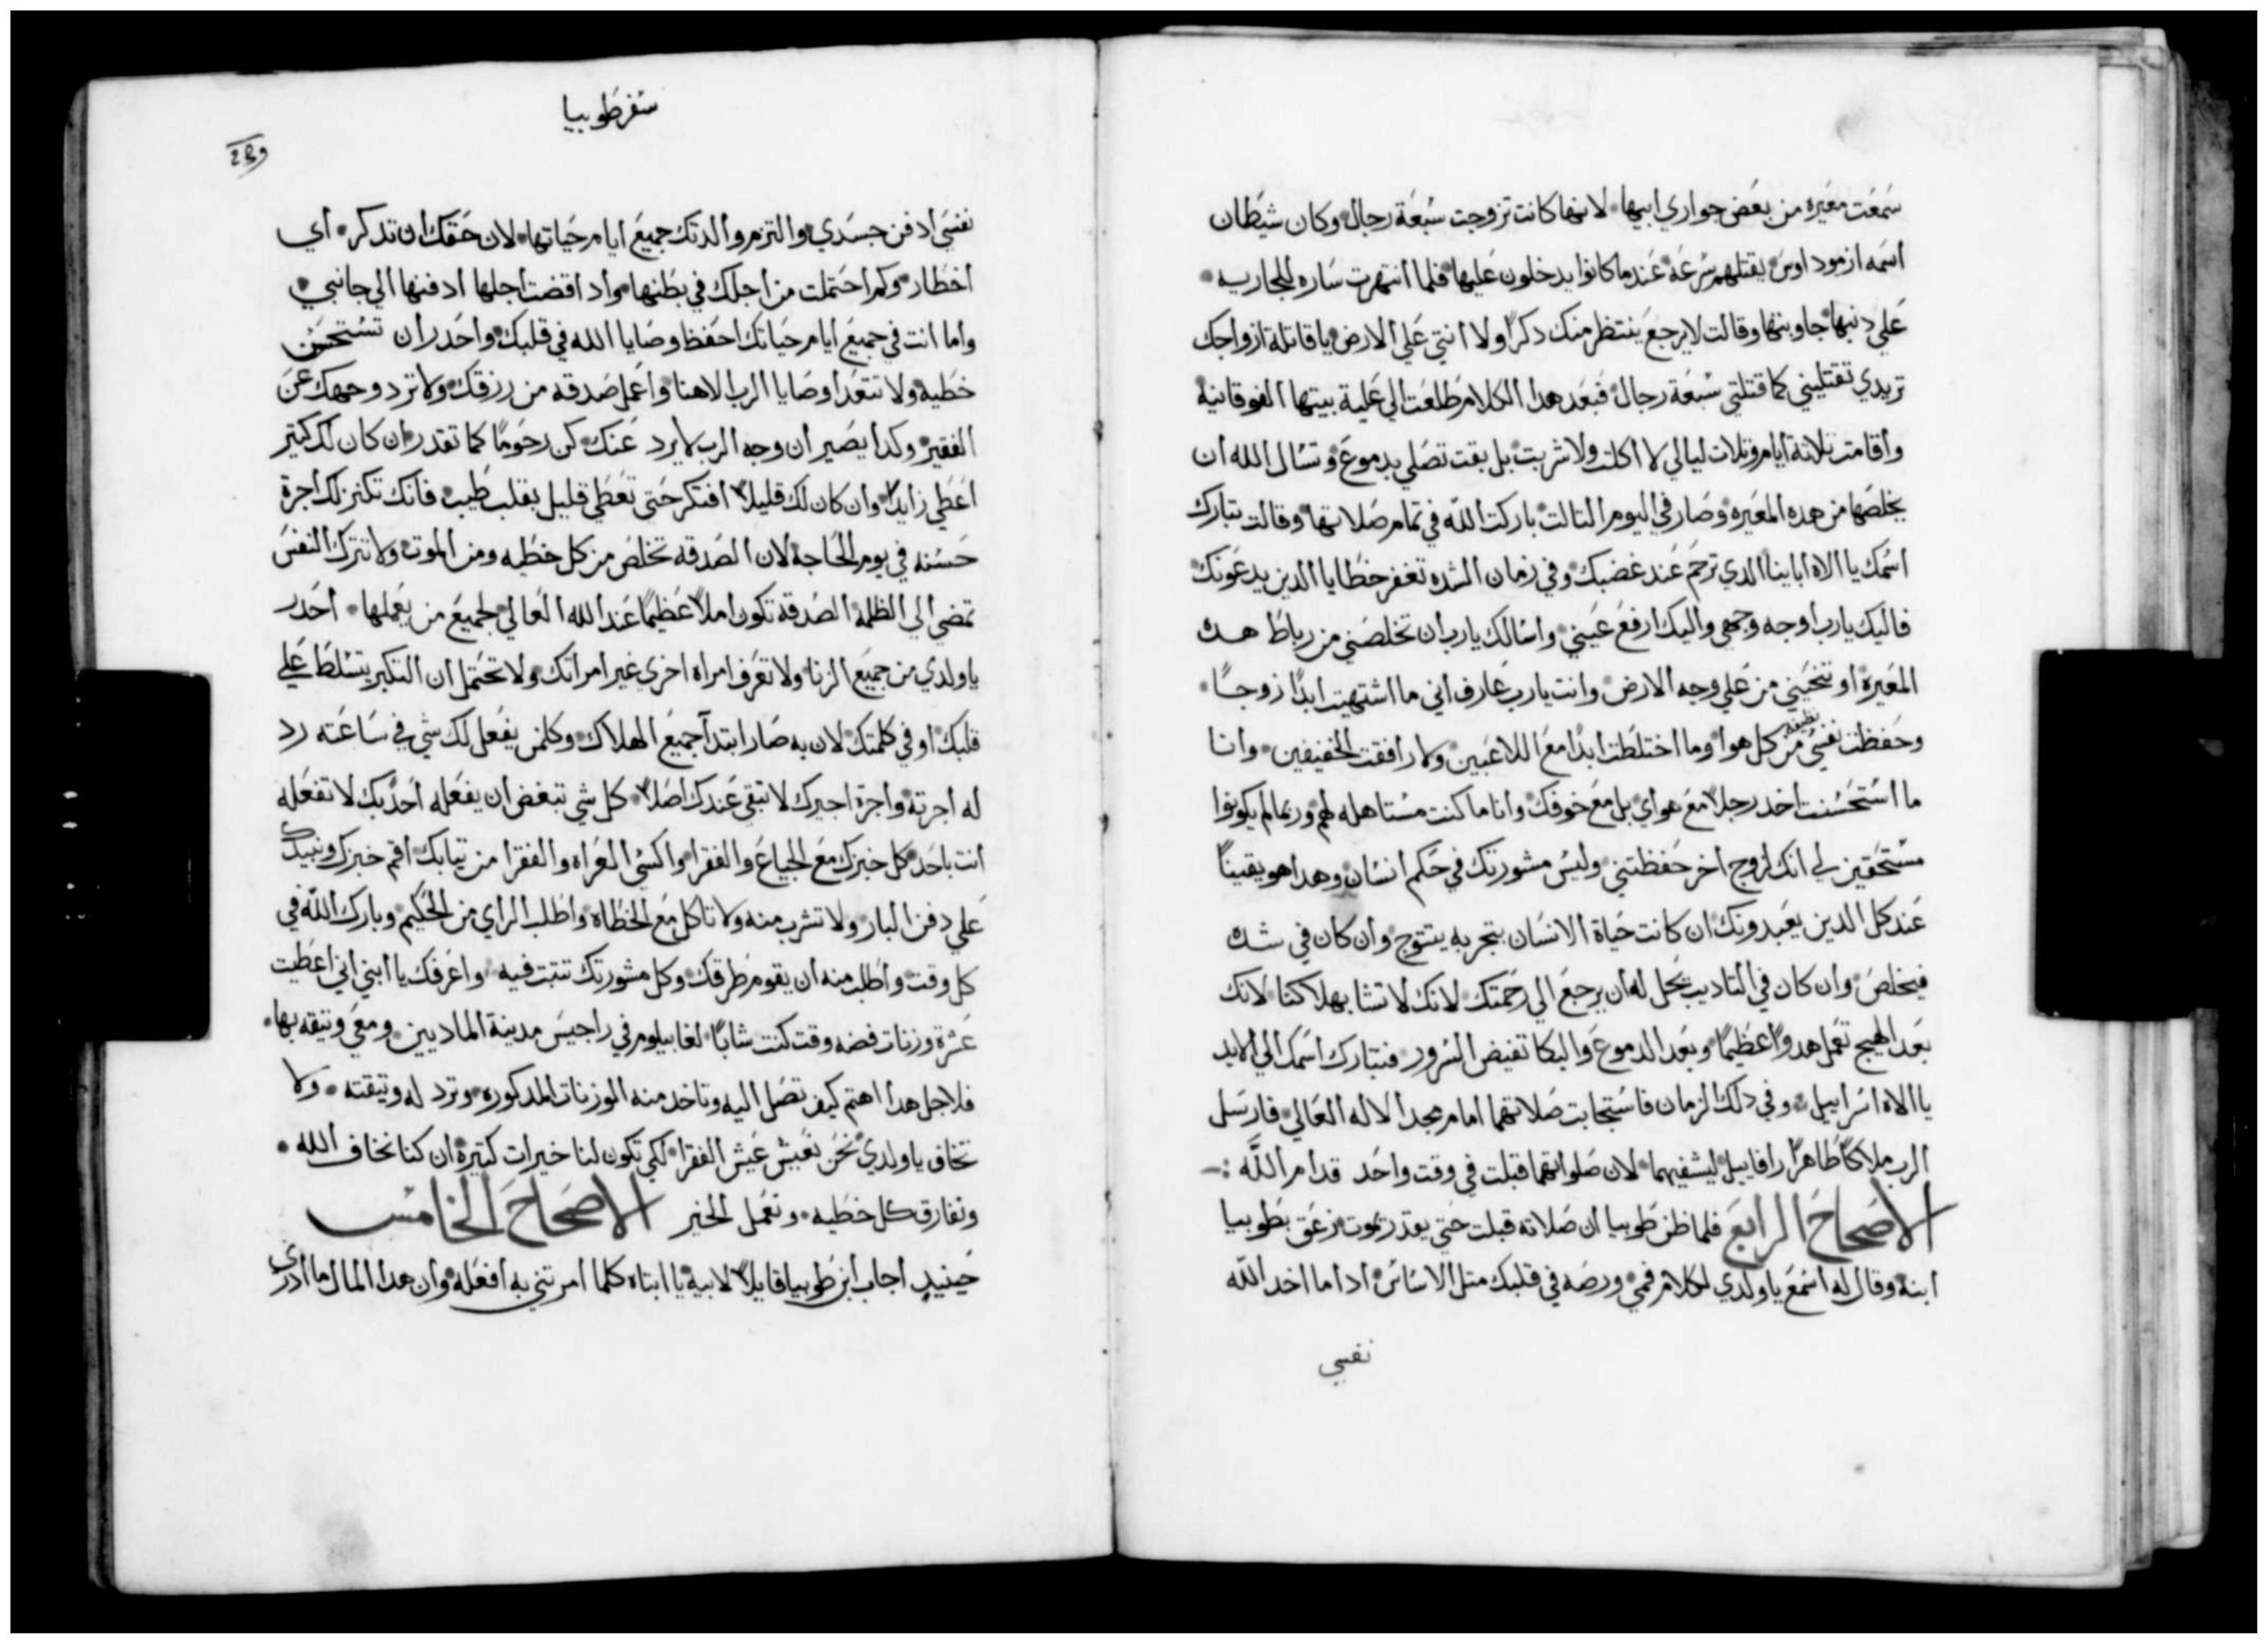 سمعت معيره من بعض جواري ابيها لانها كانت تزوجت سبعة رجال وكان شيطان
اسمه ازموداوس يقتلهم سرعة عندما كانوا يدخلون عليها فلما انتهرت ساره للجاريه
علي دنبها جاوبتها وقالت لا يرجع ينتظر منك دكرا ولا انتي علي الارض يا قاتلة ازواجك
تريدي تقتليني كما قتلتي سبعة رجال فبعد هدا الكلام طلعت الي علية بيتها الفوقانية
واقامت تلاتة ايام وتلات ليالي لا اكلت ولا شربت بل بقت تصلي بدموع وتسال الله ان
يخلصها من هده المعيره وصار في اليوم التالت باركت الله في تمام صلاتها وقالت تبارك
اسمك يا الاه ابايينا الدي ترحم عند غضبك وفي زمان الشده تغفر خطايا الدين يدعونك
فاليك يارب اوجه وجهي واليك ارفع عيني واسالك يارب ان تخلصني من رباط هده
المعيرة او تنحيني من علي وجه الارض وانت يارب عارف اني ما اشتهيت ابدا زوجا
وحفظت نفسي نظيفه من كل هوا وما اختلطت ابدا مع اللاعبين ولا رافقت الخفيفين وانا
ما استحسنت اخد رجلا مع هواي بل مع خوفك وانا ما كنت مستاهله لهم وربما لم يكونوا
مستحقين لي انك لزوج اخر حفظتني وليس مشورتك في حكم انسان وهدا هو يقينا
عند كل الدين يعبدونك ان كانت حياة الانسان بتجربه يتتوج وان كان في شده
فيخلص وان كان في التاديب يحل له ان يرجع الي رحمتك لانك لا تشا بهلاكنا لانك
بعد الهيج تعمل هدوا عظيما وبعد الدموع والبكا تفيض السرور فتبارك اسمك الي الابد
يا الاه اسراييل وفي دلك الزمان فاستجابت صلاتهما امام مجد الاله العالي فارسل
الرب ملاكا طاهرا رافاييل ليشفيهما لان صلواتهما قبلت في وقت واحد قدام الله
الاصحاح الرابع فلما ظن طوبيا ان صلاته قبلت حتي يقدر يموت زعق بطوبيا
ابنه وقال له اسمع يا ولدي لكلام فمي ورصه في قلبك متل الاساس ادا ما اخد الله
نفسي
سفر طوبيا
نفسي ادفن جسدي والتزم والدتك جميع ايام حياتها لان حقك ان تدكر اي
اخطار وكم احتملت من اجلك في بطنها واد اقضت اجلها ادفنها الي جانبي
واما انت في جميع ايام حياتك احفظ وصايا الله في قلبك واحدر ان تستحسن
خطيه ولا تتعدا وصايا الرب الاهنا واعمل صدقه من رزقك ولا ترد وجهك عن
الفقير وكدا يصير ان وجه الرب لا يرد عنك كن رحوما كما تقدر ان كان لك كتير
اعطي زايدا وان كان لك قليلا افتكر حتي تعطي قليل بقلب طيب فانك تكنز لك اجرة
حسنه في يوم الحاجة لان الصدقه تخلص من كل خطيه ومن الموت ولا تترك النفس
تمضي الي الظلمة الصدقة تكون املا عظيما عند الله العالي لجميع من يعملها احدر
يا ولدي من جميع الزنا ولا تعرف امراه اخرى غير امراتك ولا تحتمل ان التكبر يتسلط علي
قلبك او في كلمتك لان به صار ابتدآ جميع الهلاك وكلمن يفعل لك شي في ساعته رد
له اجرته واجرة اجيرك لا تبقي عندك اصلا كل شي تبغض ان يفعله احدا بك لا تفعله
انت باحد كل خبزك مع الجياع والفقرا واكسي العراه والفقرا من تيابك اقم خبزك ونبيدك
علي دفن البار ولا تشرب منه ولا تاكل مع الخطاة واطلب الراي من الحكيم وبارك الله في
كل وقت واطلب منه ان يقوم طرقك وكل مشورتك تتبت فيه واعرفك يا ابني اني اعطيت
عشرة وزنات فضه وقت كنت شابا لغابيلوم في راجيس مدينة الماديين ومعي وتيقه بها
فلاجل هدا اهتم كيف تصل اليه وتاخد منه الوزنات المدكوره وترد له وتيقته ولا
تخاف يا ولدي نحن نعيش عيش الفقرا لكي تكون لنا خيرات كتيرة ان كنا نخاف الله
ونفارق كل خطيه ونعمل الخير الاصحاح الخامس
حينيد اجاب ابن طوبيا قايلا لابيه يا ابتاه كلما امرتني به افعله وان هدا المال ما ادري